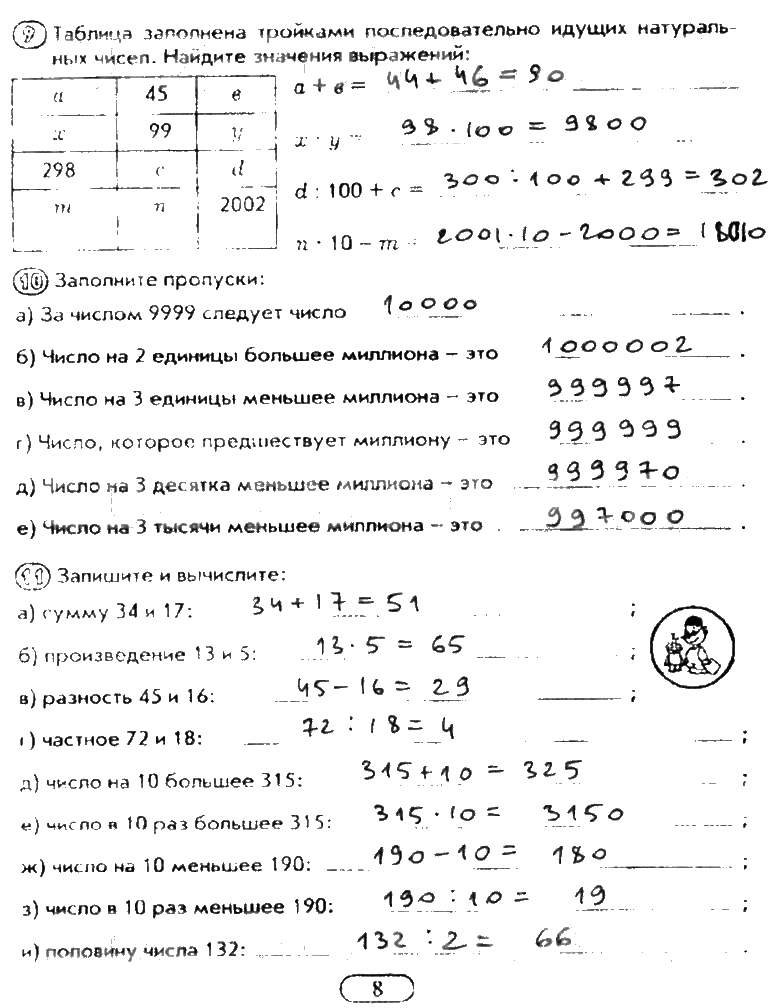 9 Таблица заполнена тройками последовательно идущих натураль-
ных чисел. Найдите значения выражений:
a 45 в
x 99 y
298 c d
m n 2002
a + в = 44 + 46 = 90
x · y = 98 · 100 = 9800
d : 100 + c = 300 : 100 + 299 = 302
n · 10 – m = 2001 · 10 – 2000 = 18010
10 Заполните пропуски:
а) За числом 9999 следует число 10000 .
б) Число на 2 единицы большее миллиона – это 1000002 .
в) Число на 3 единицы меньшее миллиона – это 999997 .
г) Число, которое предшествует миллиону – это 999999 .
д) Число на 3 десятка меньшее миллиона – это 999970 .
е) Число на 3 тысячи меньшее миллиона – это 997000 .
11 Запишите и вычислите:
а) сумму 34 и 17: 34 + 17 = 51 ;
б) произведение 13 и 5: 13 · 5 = 65 ;
в) разность 45 и 16: 45 – 16 = 29 ;
г) частное 72 и 18: 72 : 18 = 4 ;
д) число на 10 большее 315: 315 + 10 = 325 ;
е) число в 10 раз большее 315: 315 · 10 = 3150 ;
ж) число на 10 меньшее 190: 190 – 10 = 180 ;
з) число в 10 раз меньшее 190: 190 : 10 = 19 ;
и) половину числа 132: 132 : 2 = 66 .
8